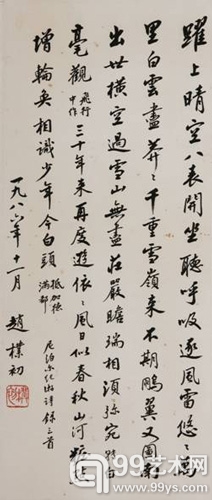 躍上晴空八表開坐聽呼吸逐風雷悠悠萬
里白雲盡莽莽千重雪嶺來不期鵬翼又圖南
出世橫空過雪山無盡莊嚴瞻瑞相頂珠宛
毫觀飛行中作三十年來再度遊依依風日似春秋山河
增輪奐相識少年今白頭抵加德滿都
尼泊爾紀遊詩錄三首
一九八六年十一月 趙樸初
99艺术网
www.99ys.com